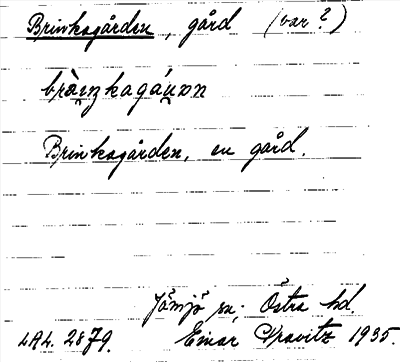 Brinkagården, gård (var?)
Brinkagården, en gård.
Jämjö sn; Östra hd.
LAL. 2879. Einar Kravitz 1935.